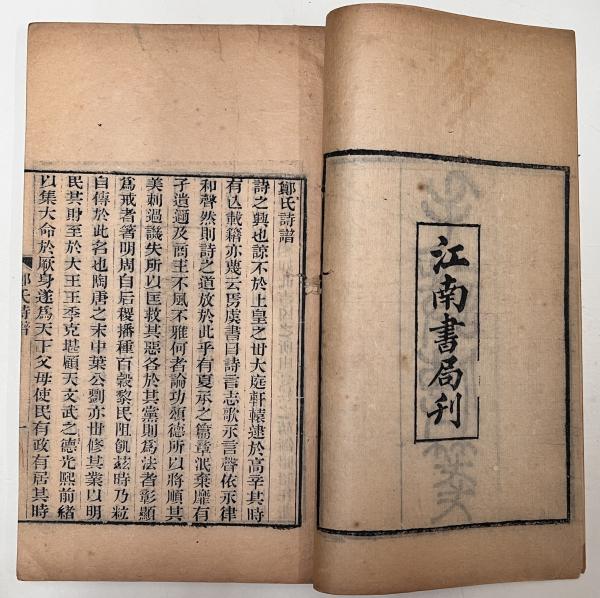 江南書局刊
鄭氏詩譜
詩之興也諒不於上皇之丗大庭軒轅逮於高辛其時
有亾載籍亦蔑云焉虞書曰詩言志歌永言聲依永律
和聲然則詩之道放於此乎有夏承之篇章泯棄靡有
孑遺邇及商王不風不雅何者論功頌德所以將順其
美刺過譏失所以匡救其惡各於其黨則爲法者彰顯
爲戒者著明周自后稷播種百穀黎民阻飢茲時乃粒
自傳於此名也陶唐之末中葉公劉亦丗修其業以明
民共財至於大王王季克堪顧天文武之德光熙前緒
以集大命於厥身遂爲天下父母使民有政有居其時
鄭氏詩譜 一